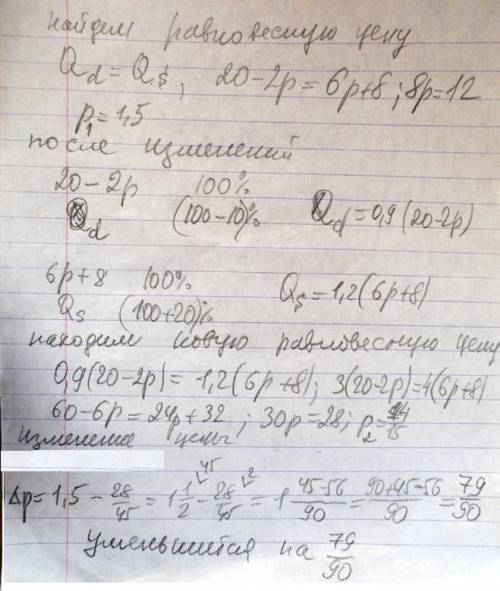 найдем равновесную цену
Qd = Qs, 20-2p = 6p+8; 8p=12
p₁ = 1,5
после изменений
20-2p 100%
Qd (100-10)% Qd = 0,9(20-2p)
6p+8 100%
Qs (100+20)% Qs = 1,2(6p+8)
находим новую равновесную цену
0,9(20-2p) = 1,2(6p+8); 3(20-2p)=4(6p+8)
60-6p = 24p+32; 30p=28; p₂ = 14/15
изменение цены
Δp = 1,5 - 28/45 = 1 1/2 - 28/45 = 1 45-56/90 = 90+45-56/90 = 79/90
уменьшится на 79/90